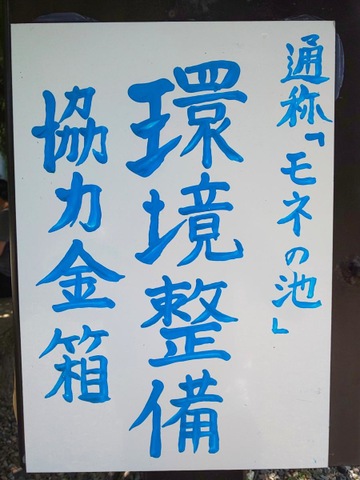 通称「モネの池」
環境整備
協力金箱